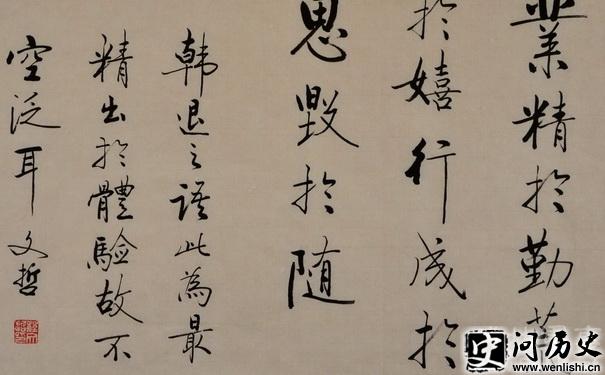 業精於勤荒
於嬉行成於
思毀於隨
韩退之语此為最
精出於體驗故不
空泛耳文哲
史问历史
www.wenlishi.cn